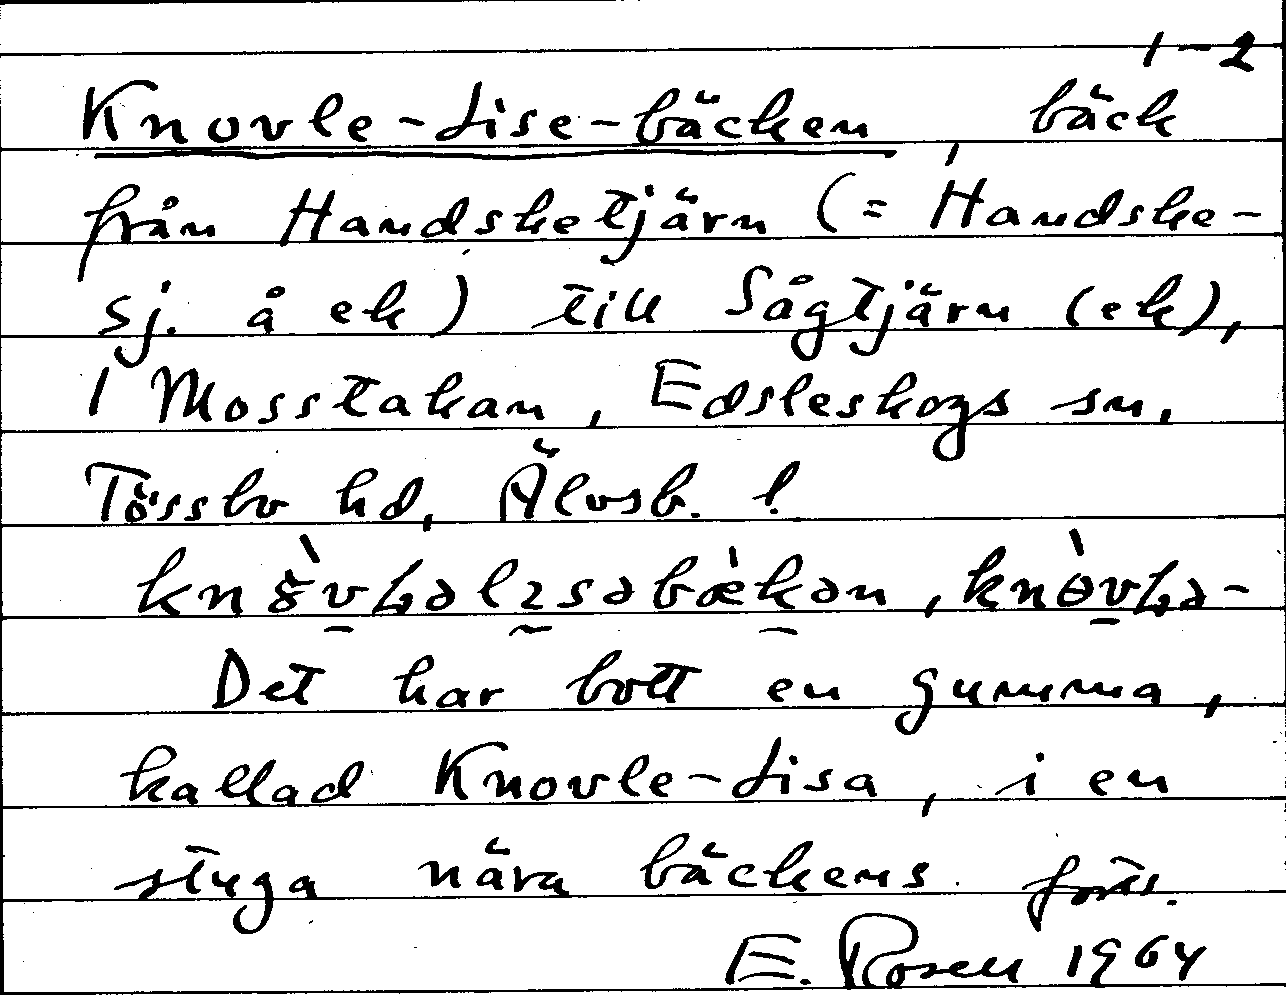 1-2
Knovle-Lise-bäcken, bäck
från Handsketjärn (= Handske-
sj. å ek) till Sågtjärn (ek),
i Mosstakan, Edsleskogs sn,
Tössbo hd, Älvsb. l.
Det har bott en gumma,
kallad Knovle-Lisa, i en
stuga nära bäckens forts.
E. Rosell 1964